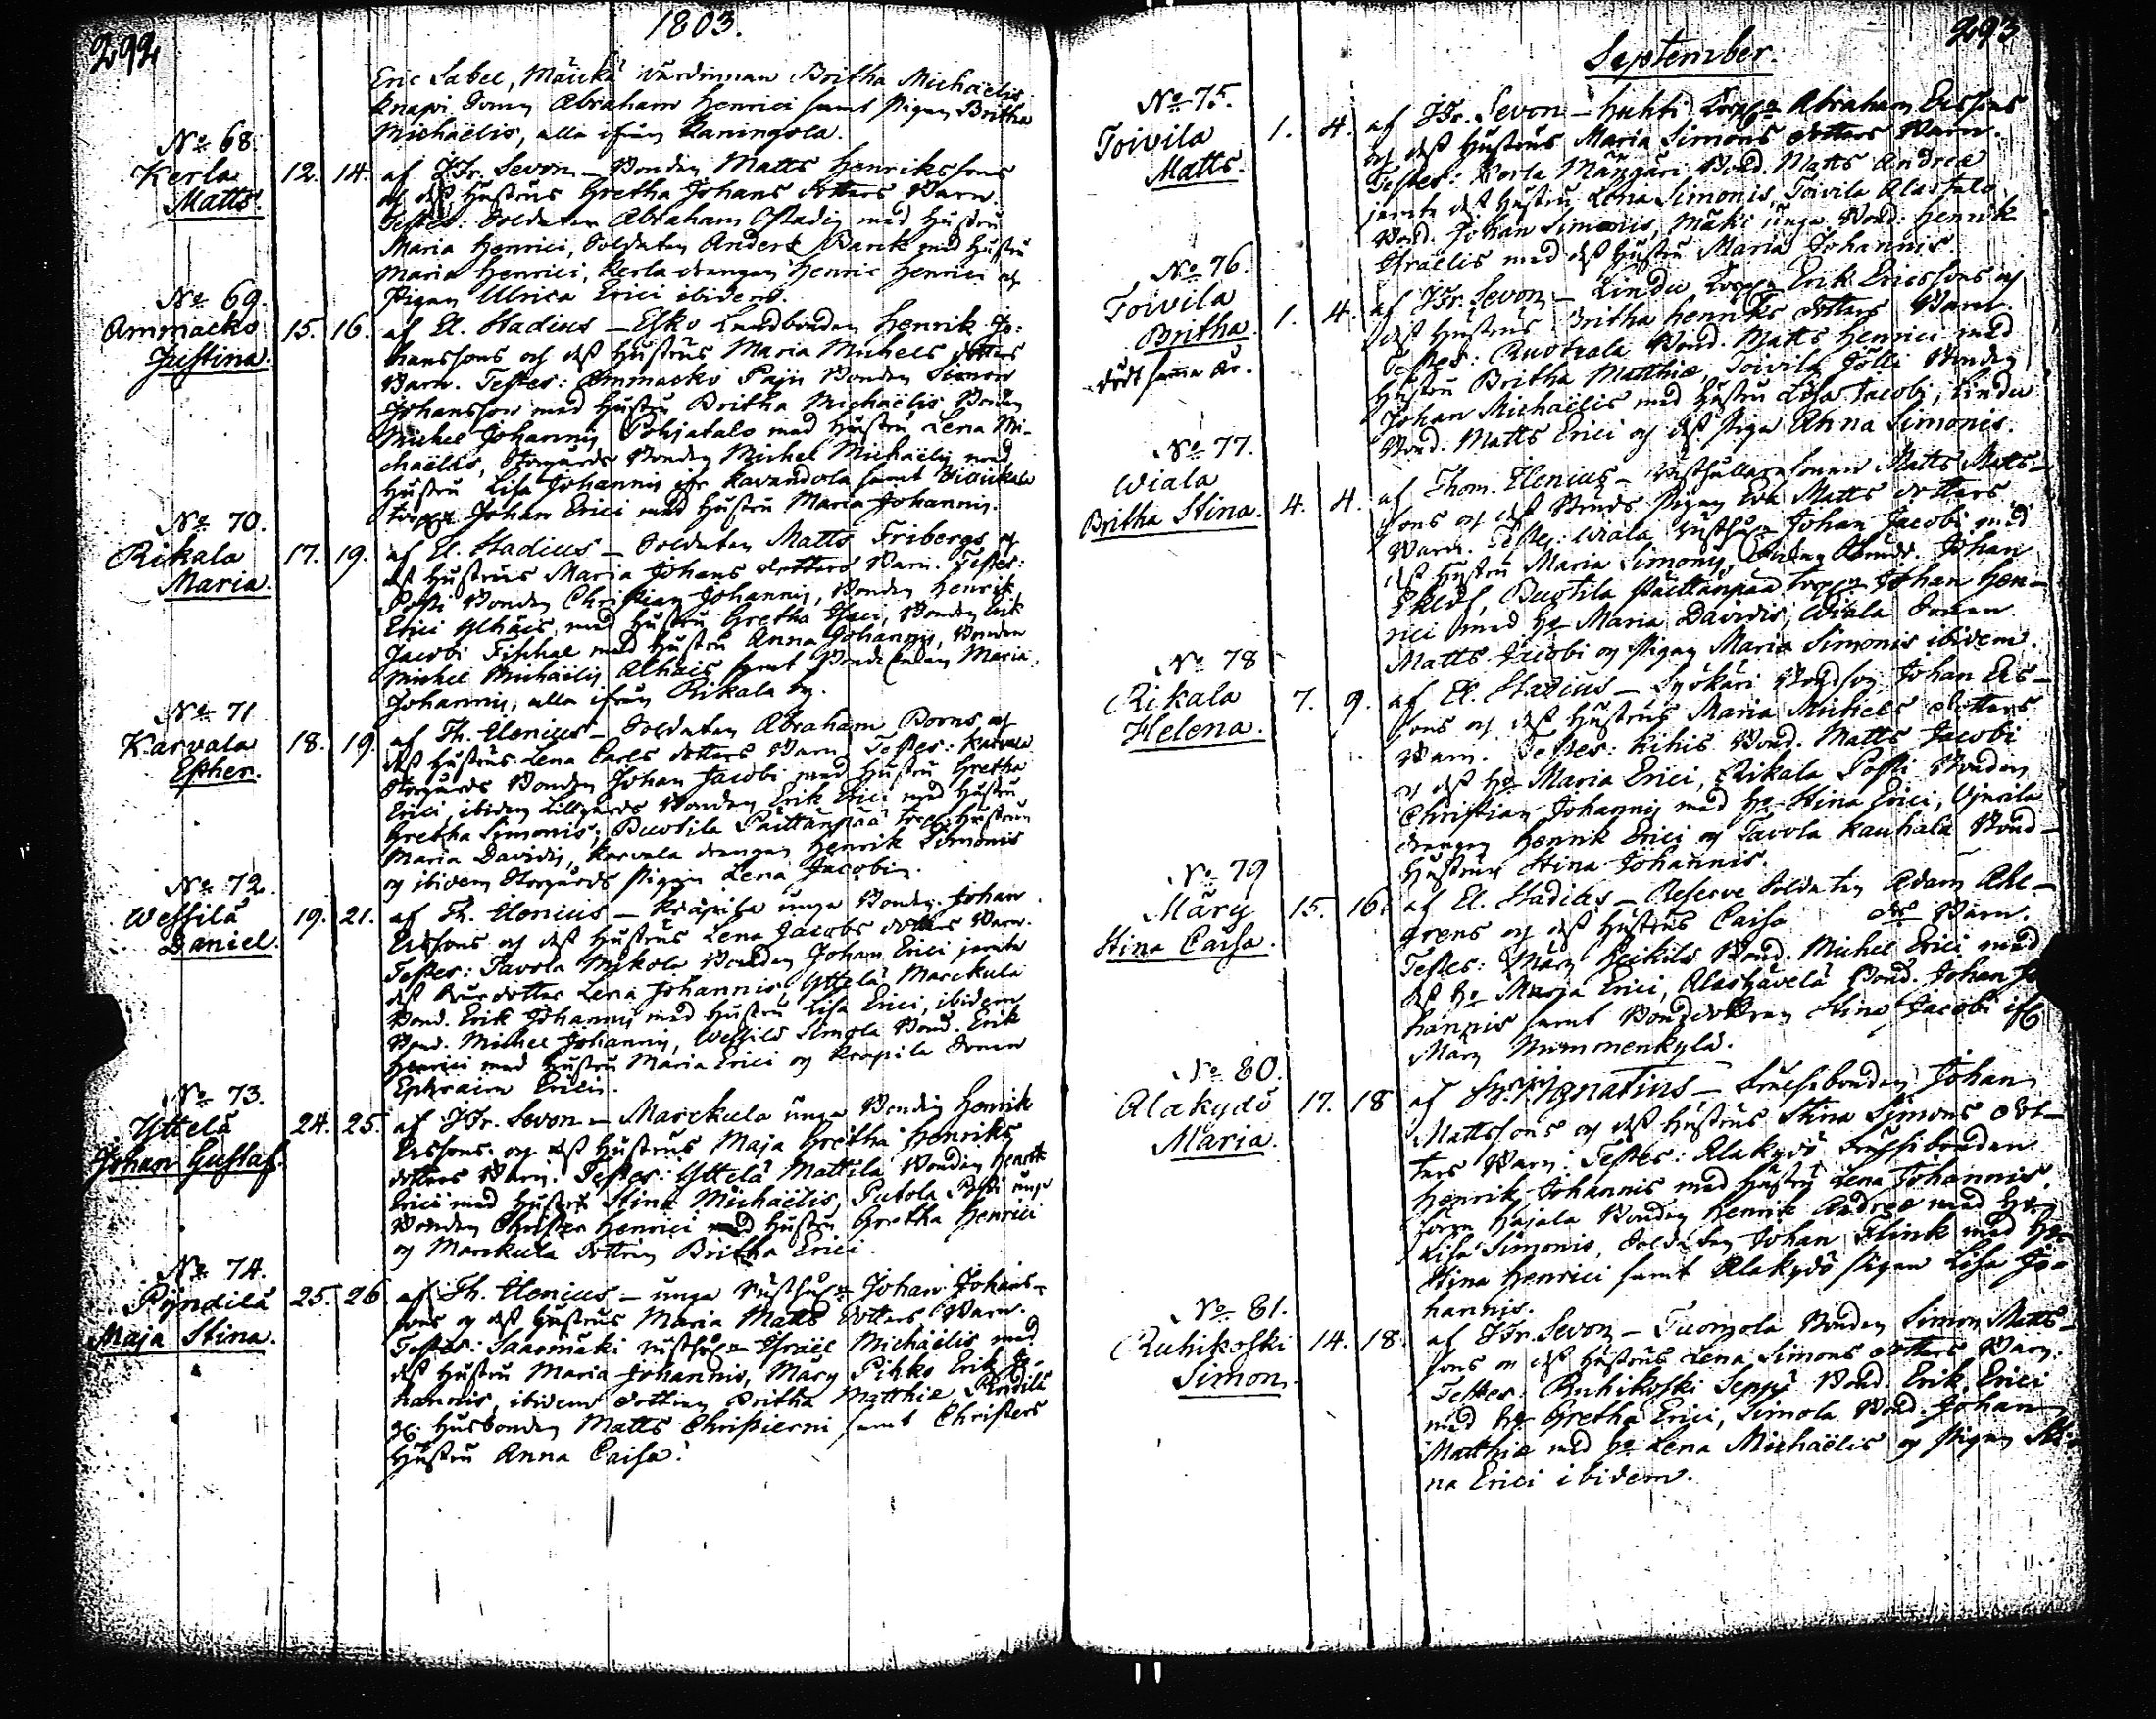 292
1803.
Eric Sabel, Mäickä värdinnan Britha Michaëlis
Knapi Sonen Abraham Henrici samt Pigan Britha
Michaëlis, alla ifrån Kaningola.
No 68.
Kerla
Matts.
12. 14. af Fr. Sevon – Bonden Matts Henrikssons
och dess Hustrus Gretha Johans dotters Barn.
Testes: Soldaten Abraham Ostadig med Hustru
Maria Henrici, Soldaten Anders Bank med Hustru
Maria Henrici, Kerla drengen Henric Henrici och
Pigan Ulrica Erici ibidem.
No 69.
Ammacko
Justina.
15. 16. af El. Stadius – Esko Landbonden Henrik Jo-
hanssons och dess Hustrus Maria Michels dotters
Barn. Testes: Ammacko Pajú Bonden Simon
Johansson med Hustru Britha Michaëlis Bonden
Michel Johannis Pohjatalo med Hustru Lena Mi-
chaëlis, Storgårds Bonden Michel Michaëlis med
Hustru Lisa Johannis ifr Kavandola samt
Johan Erici med Hustru Maria Johannis.
No 70.
Rikala
Maria.
17. 19. af El. Stadius – Soldaten Matts Fribergs och
dess Hustrus Maria Johans dotters Barn. Testes:
Posti Bonden Christian Johannis, Bonden Henrik
Erici Ylhäis med Hustru Gretha Isaci, Bonden Erik
Jacobi Tishal med Hustru Anna Johannis, Bonden
Michel Michaëlis Alhais samt Maria
Johannis, alla ifrån Rikala by.
No 71
Karvala
Esther.
18. 19. af Th. Elenius – Soldaten Abraham Borns och
dess Hustrus Lena Carls dotters Barn. Testes: Karvala
Storgårds Bonden Johan Jacobi med Hustru Gretha
Erici, ibidem Lillgårds Bonden Erik Erici med Hustru
Gretha Simonis; Buotila Päittänpää Hustrun
Maria Davidis, Karvala drengen Henrik Simonis
och ibidem Storgårds Pigan Lena Jacobi.
No 72.
Wessilä
Daniel.
19. 21. af Th. Elenius – Kräpilä unga Bonden Johan
Erissons och dess Hustrus Lena Jacobs dotters Barn.
Testes: Tavola Mikola Bonden Johan Erici jemte
dess dotter Lena Johannis, Yttelä Marckula
Bond. Erik Johannis med Hustru Lisa Erici, ibidem
Bond. Michel Johannis, Wessilä Simola Bond. Erik
Henrici med Hustru Maria Erici och Krapila Sonen
Ephraim Erici.
No 73.
Yttelä
Johan Gustaf.
24. 25. af Fr. Sevon – Marckula unga Bonden Henrik
Erissons och dess Hustrus Maja Gretha Henriks
dotters Barn. Testes: Yttelä Mattila Bonden Henrik
Erici med Hustru Stina Michaëlis, Putola Posti unga
Bonden Christer Henrici med Hustru Gretha Henrici
och Marckula dottren Britha Erici.
No 74.
Pyndilä
Maja Stina.
25. 26 af Th. Elenius – unga Johan Johans-
sons och dess Hustrus Maria Matts dotters Barn.
Testes: Saarmäki Israël Michaëlis med
dess Hustru Maria Johannis, Märy Pihko Erik Jo-
hannis, ibidem dottren Britha Matthiæ, Pyndilä
Husbonden Matts Christierni samt Christers
Hustru Anna Caisa.
293
September.
No 75.
Toivila
Matts.
1. 4. af Fr. Sevon – Huhti Abraham Erssons
och dess Hustrus Maria Simons dotters Barn.
Testes: Kerla Mängäri Bond. Matts Andreæ
jemte dess Hustru Lena Simonis, Toivila Alastalo
Bond. Johan Simonis, Mäki unga Bond: Henrik
Israëlis med dess Hustru Maria Johannis.
No 76.
Toivila
Britha.
död samma År.
1. 4. af Fr. Sevon – Lindu Erik Ericssons och
dess Hustrus Britha Henriks dotters Barn
Testes: Bond. Matts Henrici med
Hustru Britha Matthiæ, Toivila Jölli Bonden
Johan Michaëlis med Hustru Lisa Jacobi, Lindu
Bond. Matts Erici och dess Piga Anna Simonis.
No 77.
Wiala
Britha Stina.
4. 4. af Thom. Elenius – Matts Matts-
sons och dess Pigan Eva Matts dotters
Barn. Testes: Wiala Johan Jacobi med
dess Hustru Maria Simonis, Johan
Eklöf, Buotila Päittänpää Johan Hen-
rici med Ho Maria Davidis, Wiala Sonen
Matts Jacobi och Pigan Maria Simonis ibidem.
No 78
Rikala
Helena.
7. 9. af El. Stadius – Syökäri Johan Ers-
sons och dess Hustrus Maria Michels dotters
Barn. Testes: Kihis Bond. Matts Jacobi
och dess Ho Maria Erici, Rikala Posti Bonden
Christian Johannis med Ho Stina Erici, Vjarila
drengen Henrik Erici och Tavola Kauhala Bond-
Hustrun Stina Johannis.
No 79
Märy
Stina Caisa.
15. 16. af El. Stadius – Reserve Soldaten Adam Ahl-
grens och dess Hustrus Caisa drs Barn.
Testes: Märy Bond. Michel Erici med
dess Ho Maria Erici, Alastävelä Bond. Johan Jo-
hannis samt Bondedottren Stina Jacobi ifr
Märy Nummenkylä.
No 80.
Alakydö
Maria.
17. 18 af Ignatius – Frälsebonden Johan
Mattssons och dess Hustrus Stina Simons dot-
ters Barn. Testes: Alakydö Frälsebonden
Henrik Johannis med Hustru Lena Johannis,
Hajala Bonden Henrik Andreæ med Ho
Lisa Simonis, Soldaten Johan Flink med Ho
Stina Henrici samt Alakydö Pigan Lisa Jo-
hannis.
No 81.
Ruhikoski
Simon.
14. 18. af Fr. Sevon – Tuomola Bonden Simon Matts-
sons och dess Hustrus Lena Simons dotters Barn.
Testes: Ruhikoski Seppä Bond Erik Erici
med Ho Gretha Erici, Simola Bond. Johan
Matthiæ med Ho Lena Michaëlis och Pigan Sti-
na Erici ibidem.